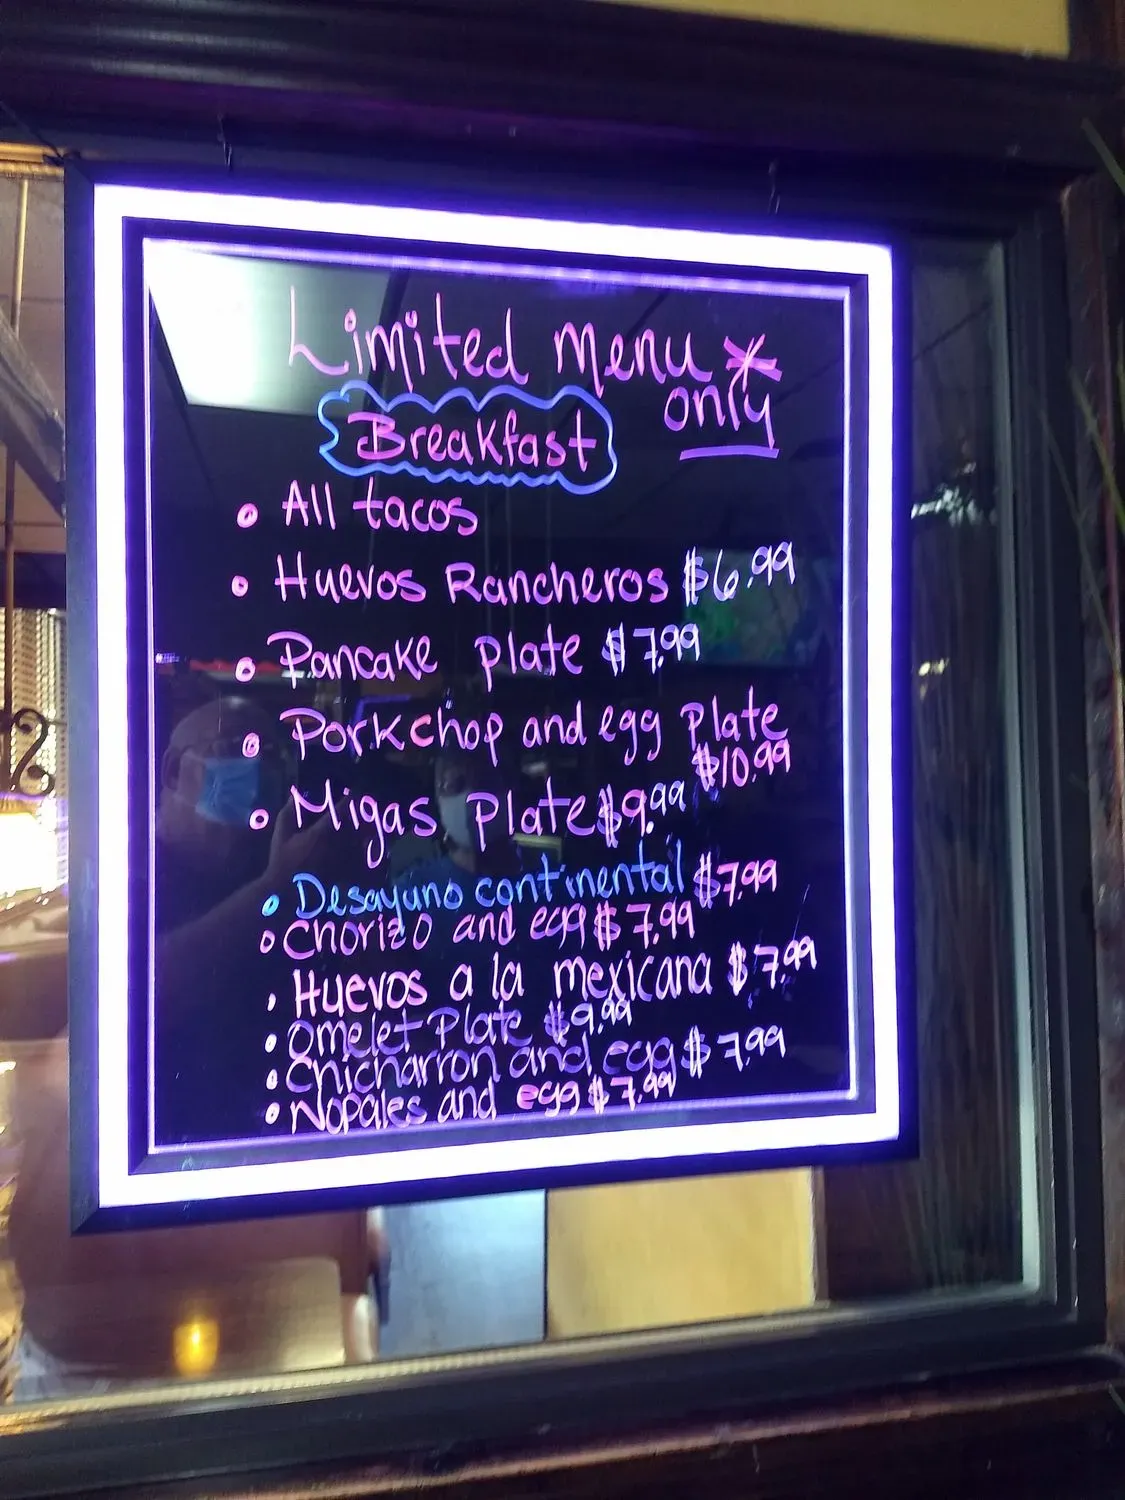 Limited Menu *
only
Breakfast
• All tacos
• Huevos Rancheros $6.99
• Pancake plate $7.99
• Porkchop and egg plate
$10.99
• Migas Plate $9.99
• Desayuno continental $7.99
• Chorizo and egg $7.99
• Huevos a la mexicana $7.99
• Omelet Plate $9.99
• Chicharron and egg $7.99
• Nopales and egg $7.99